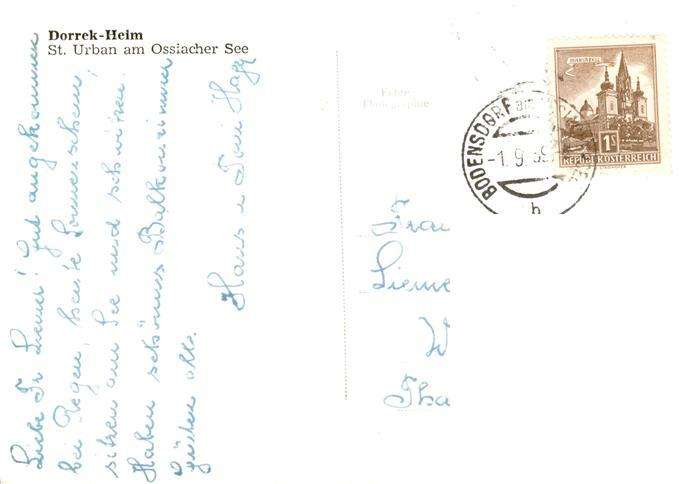 Dorrek-Heim
St. Urban am Ossiacher See
Liebe Fr. Liemer! Gut angekommen
bei Regen, heute Sonnenschein,
sitzen am See und schwitzen.
Haben schönes Balkonzimmer
Grüßen alle.
Hans u Toni
Echte
Photographie
MARIAZELL
1S
REPUBLIK ÖSTERREICH
BODENSDORF AM
-1.9.59
b
Frau
Lieme
W
Tha